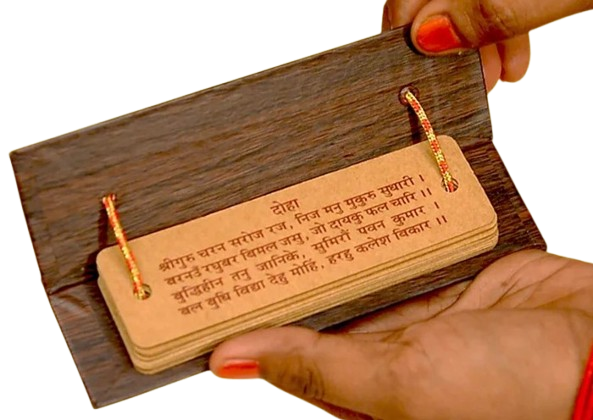 दोहा
श्रीगुरु चरन सरोज रज, निज मनु मुकुरु सुधारी ।
बरनउँ रघुबर बिमल जसु, जो दायकु फल चारि ।।
बुद्धिहीन तनु जानिके, सुमिरौं पवन कुमार ।
बल बुधि विद्या देहु मोहिं, हरहु कलेश विकार ।।